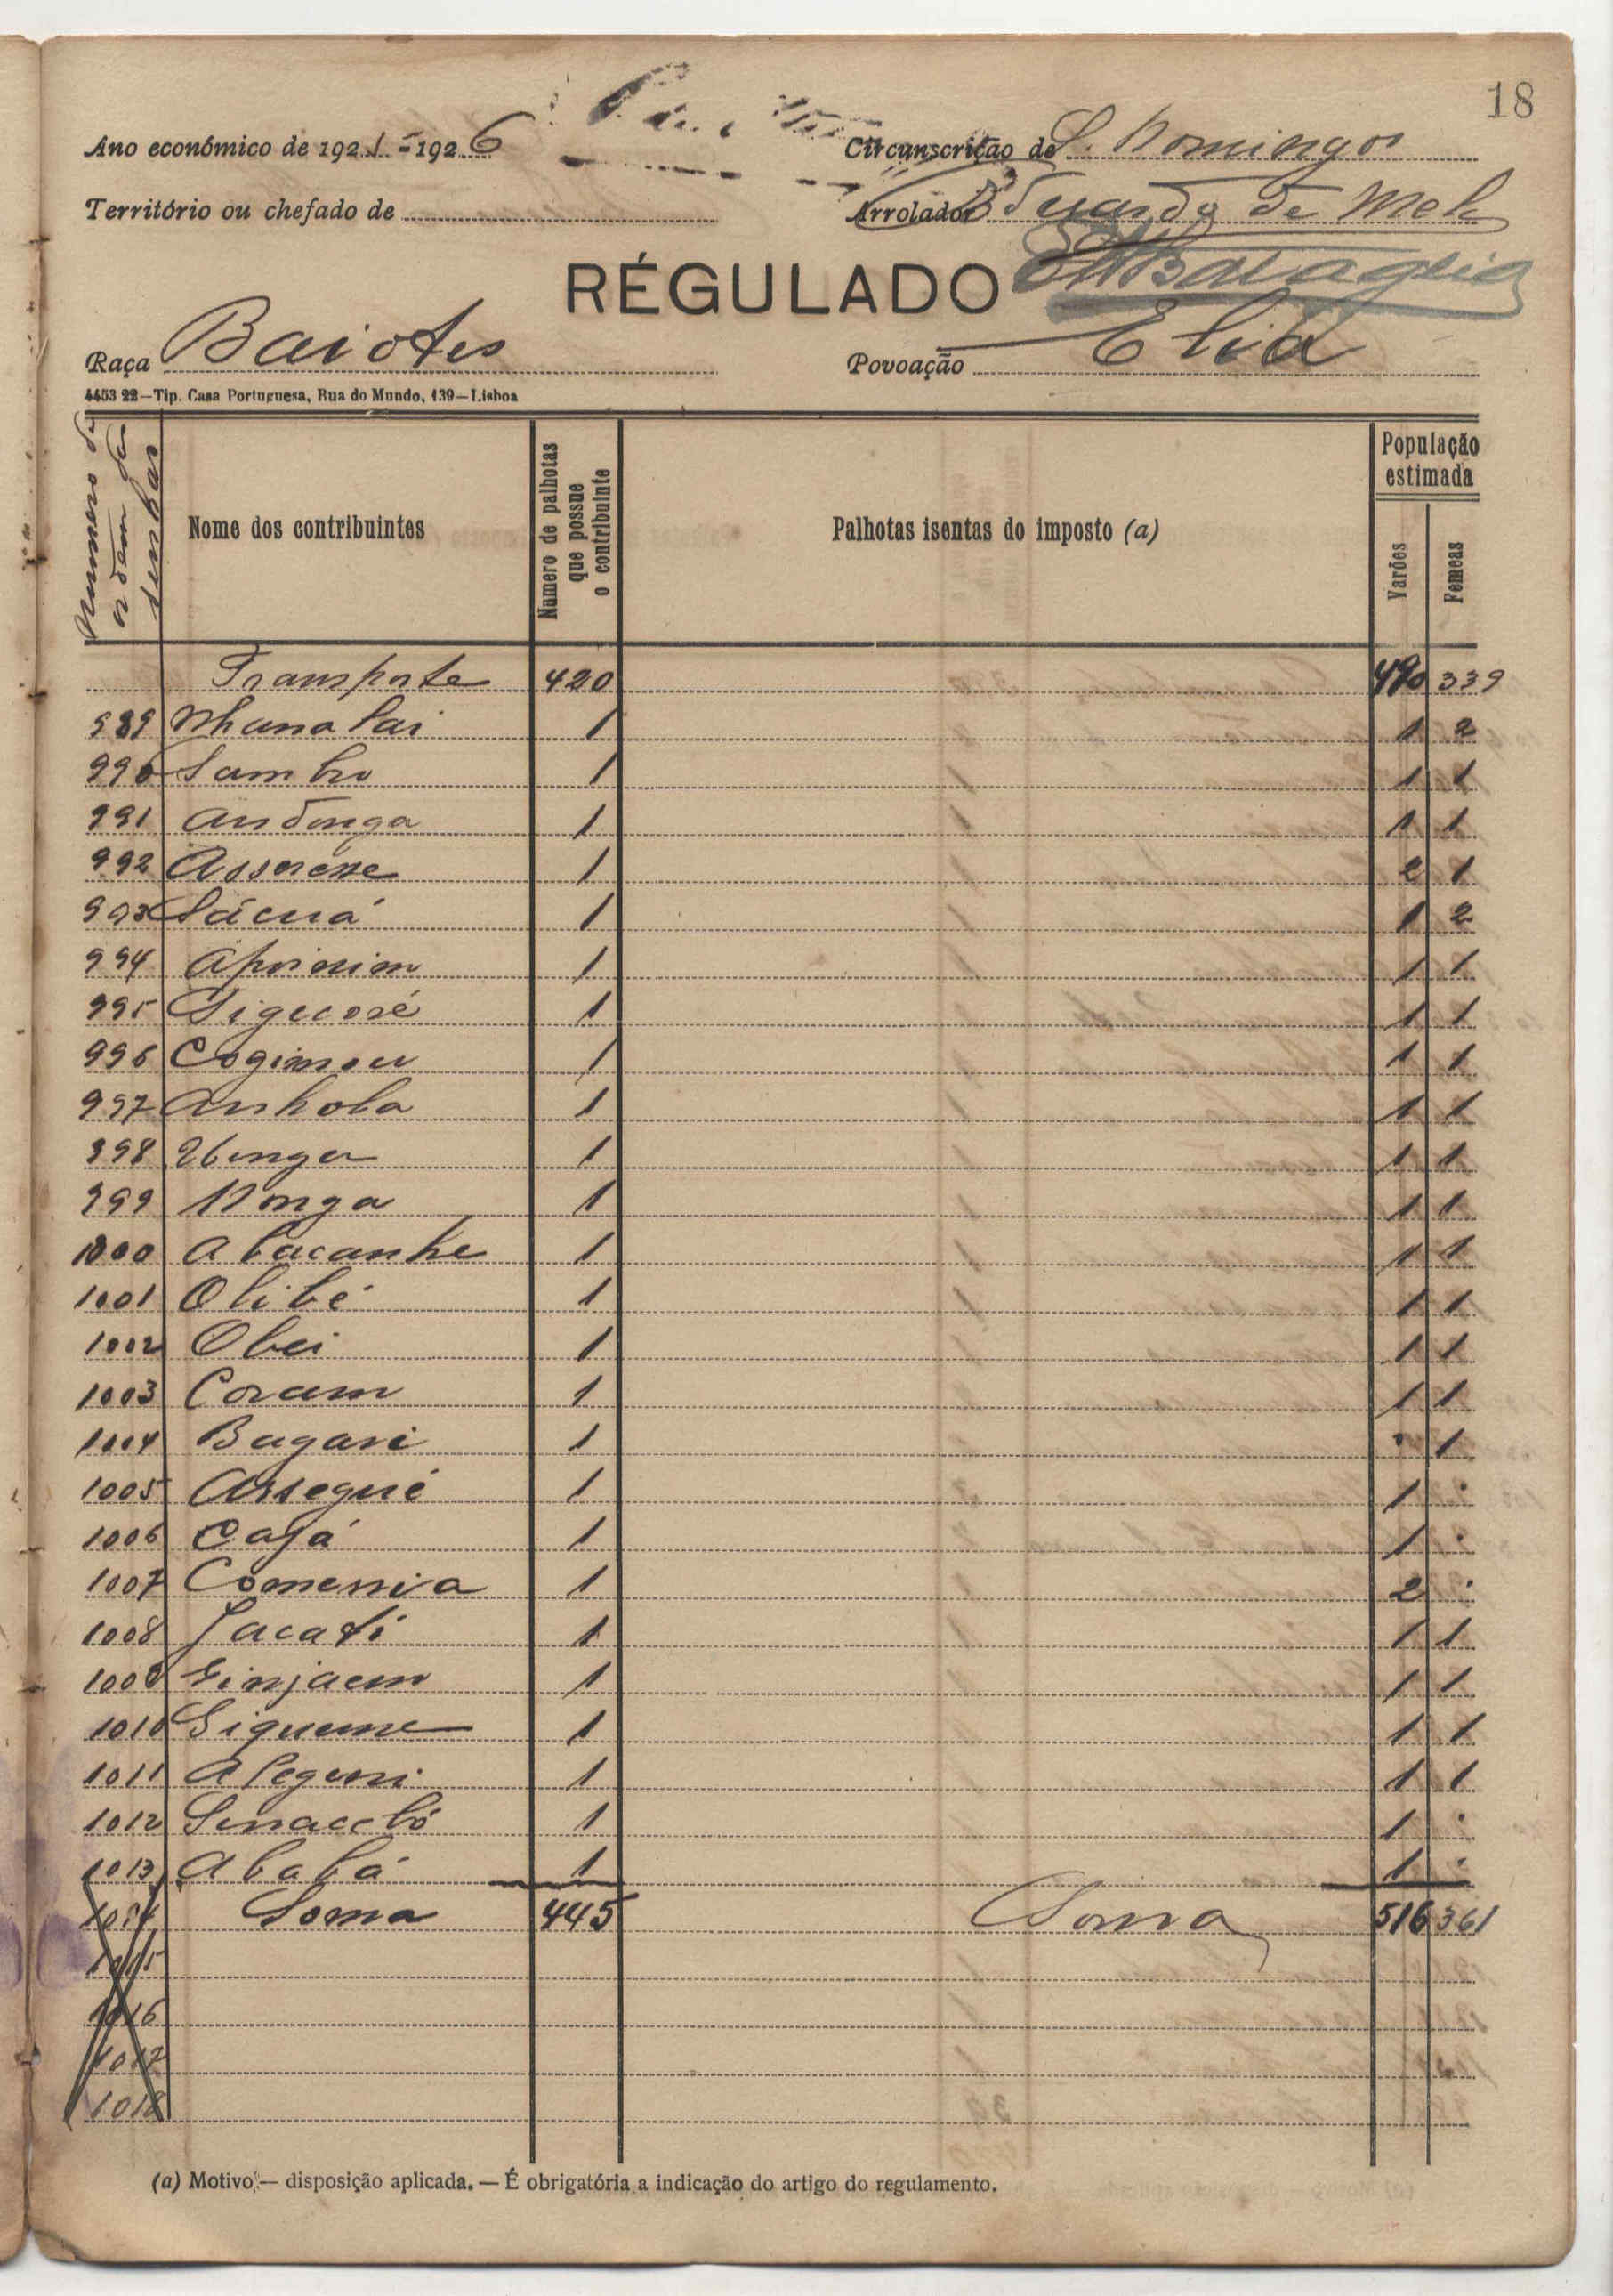 18
Ano económico de 192 -192 6 Circunscrição de S. Domingos
Território ou chefado de Arrolador Eduardo de Melo
RÉGULADO
Raça Baiotes Povoação Elia
4453 22—Tip. Casa Portuguesa, Rua do Mundo, 139—Lisboa
Numero de ordem das senhas
Nome dos contribuintes
Numero de palhotas que possue o contribuinte
Palhotas isentas do imposto (a)
População estimada
Varões
Femeas
Transporte 420 490 339
989 1 1 2
990 Sambo 1 1 1
991 Andonga 1 1 1
992 1 2 1
993 Sácuá 1 1 2
994 1 1 1
995 1 1 1
996 1 1 1
997 Anhola 1 1 1
998 1 1 1
999 Nonga 1 1 1
1000 Abacanhe 1 1 1
1001 Olibé 1 1 1
1002 Obei 1 1 1
1003 Coram 1 1 1
1004 Bugari 1 . 1
1005 Assegué 1 1 .
1006 Cajá 1 1 .
1007 1 2 .
1008 Jacati 1 1 1
1009 1 1 1
1010 Sigueme 1 1 1
1011 1 1 1
1012 1 1 .
1013 Ababá 1 1 .
1014 Soma 445 Soma 516 361
1015
1016
1017
1018
(a) Motivo — disposição aplicada. — É obrigatória a indicação do artigo do regulamento.